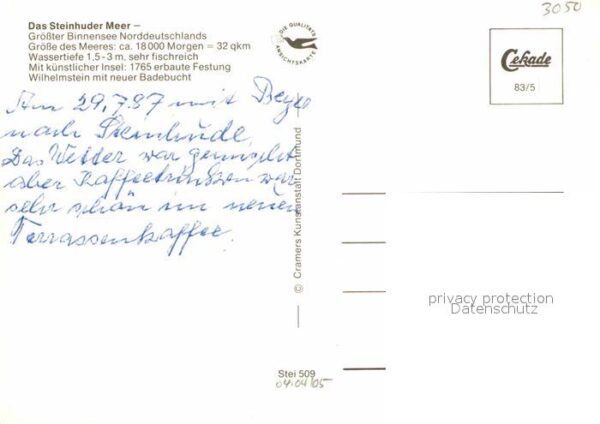 Das Steinhuder Meer –
Größter Binnensee Norddeutschlands
Größe des Meeres: ca. 18 000 Morgen = 32 qkm
Wassertiefe 1,5 - 3 m, sehr fischreich
Mit künstlicher Insel: 1765 erbaute Festung
Wilhelmstein mit neuer Badebucht
DIE QUALITÄTS
ANSICHTSKARTE
3050
Cekade
83/5
Am 29.7.87 mit
nach Steinhude.
Das Wetter war gemischt
aber Kaffeetrinken war
sehr schön im neuen
Terrassenkaffee.
© Cramers Kunstanstalt Dortmund
privacy protection
Datenschutz
Stei 509
04.04.05